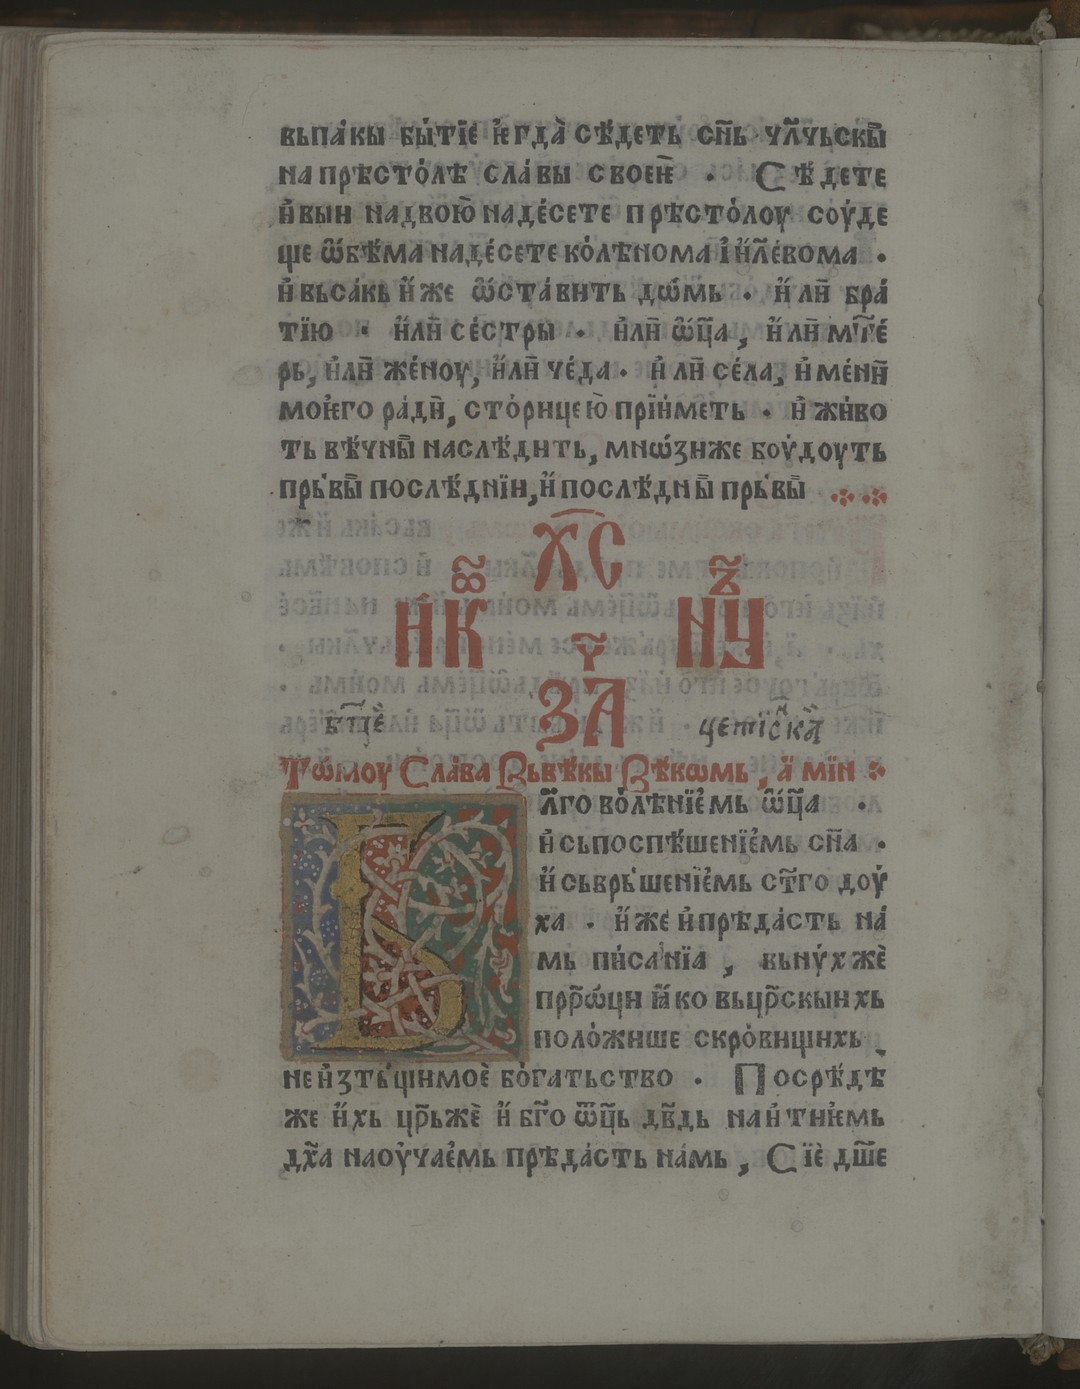 вьпа́кы бы́тїе ѥгда̀ сѣ́деть сн҃ь чл҃чьскы
на прѣсто́лѣ сла́вы своѥи · Сѣ́дете
и҆ вьıи на двою̀ на де́сете прѣсто́лоу соу́де
ще ѡ҆бѣ́ма на де́сете ко́лѣнома і҆и҃ле́вома ·
и҆ вьса́кь и҆́же ѡ҆ста́вить дѡ́мь · и҆́ли бра́
тїю · и҆́ли се́стры · и҆ли ѡ҆ц҃а , и҆́ли мт҃е́
рь, и҆ли же́ноу, и҆́ли че́да · и҆ли се́ла, и҆ме́нїи
моѥго ра́ди, сто́рицею̀ прїи́меть · и҆ жи́во
ть вѣ́чны наслѣ́дить, мнѡ́ꙁи же боу́доуть
прь́вы послѣ́днїи, и҆ послѣ́дны прь́вы
Х҃С
И҆К НꙊ
ЗА
бц҃е
Тѡ́моу Сла́ва Вьвѣ́кы Вѣ́кѡмь , а҆ мїн
л҃го во́лѣнїе́мь ѡ҆ц҃а ·
и҆ сьпоспѣ́шенїе́мь сн҃а ·
и҆ сьврь́шенїе́мь ст҃го доу́
ха · и҆́же и҆ прѣда́сть на́
мь пи́санїа , вьну́хже̏
прр҃ѡ́ци ꙗ҆́ко вьцр҃скыихь
поло́жише скро́вищихь
неи҆ꙁть́щимое̏ бо́гатьство · Посрѣ́дѣ
же и҆́хь цр҃ьже̏ и҆ бг҃о ѡ҆ц҃ь дв҃дь наи́тиѥмь
дх҃а наоу́чае́мь прѣда́сть на́мь , Сїе̏ дш҃е